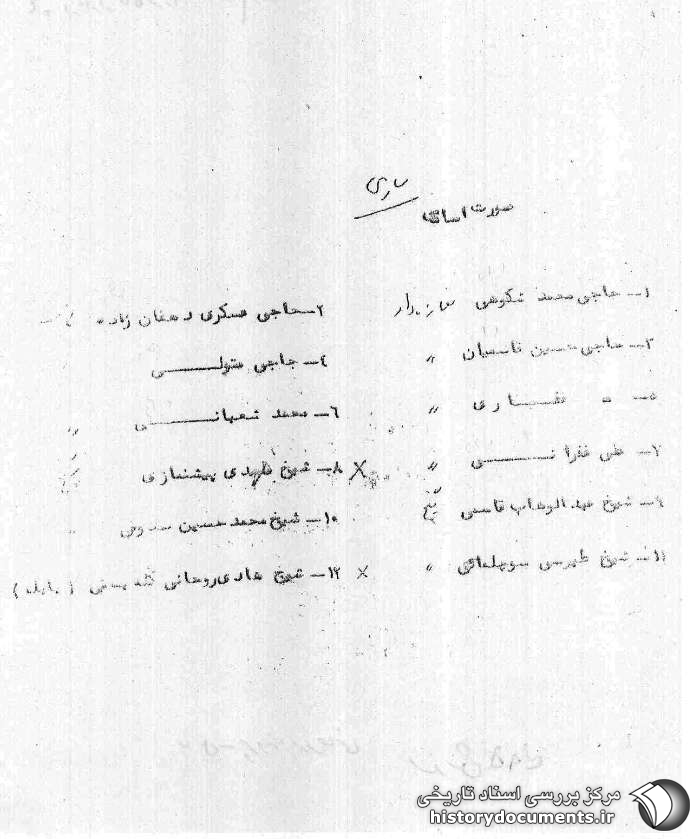 ساری
صورت اسامی
۱ــ حاجی محمد شکوهی
۲ــ حاجی عسکری دهقان زاده
۳ــ حاجی حسین قاسمیان "
۴ــ حاجی متولی
۵ــ " غفاری "
۶ــ محمد شعبانی "
۷ــ علی فقرانی "
۸ــ شیخ مهدی پیشنمازی
۹ــ شیخ عبدالوهاب قاسمی
X
۱۰ــ شیخ محمد حسین
۱۱ــ شیخ طبرسی "
X
۱۲ــ شیخ هادی روحانی ( بابل )
مرکز بررسی اسناد تاریخی
historydocuments.ir